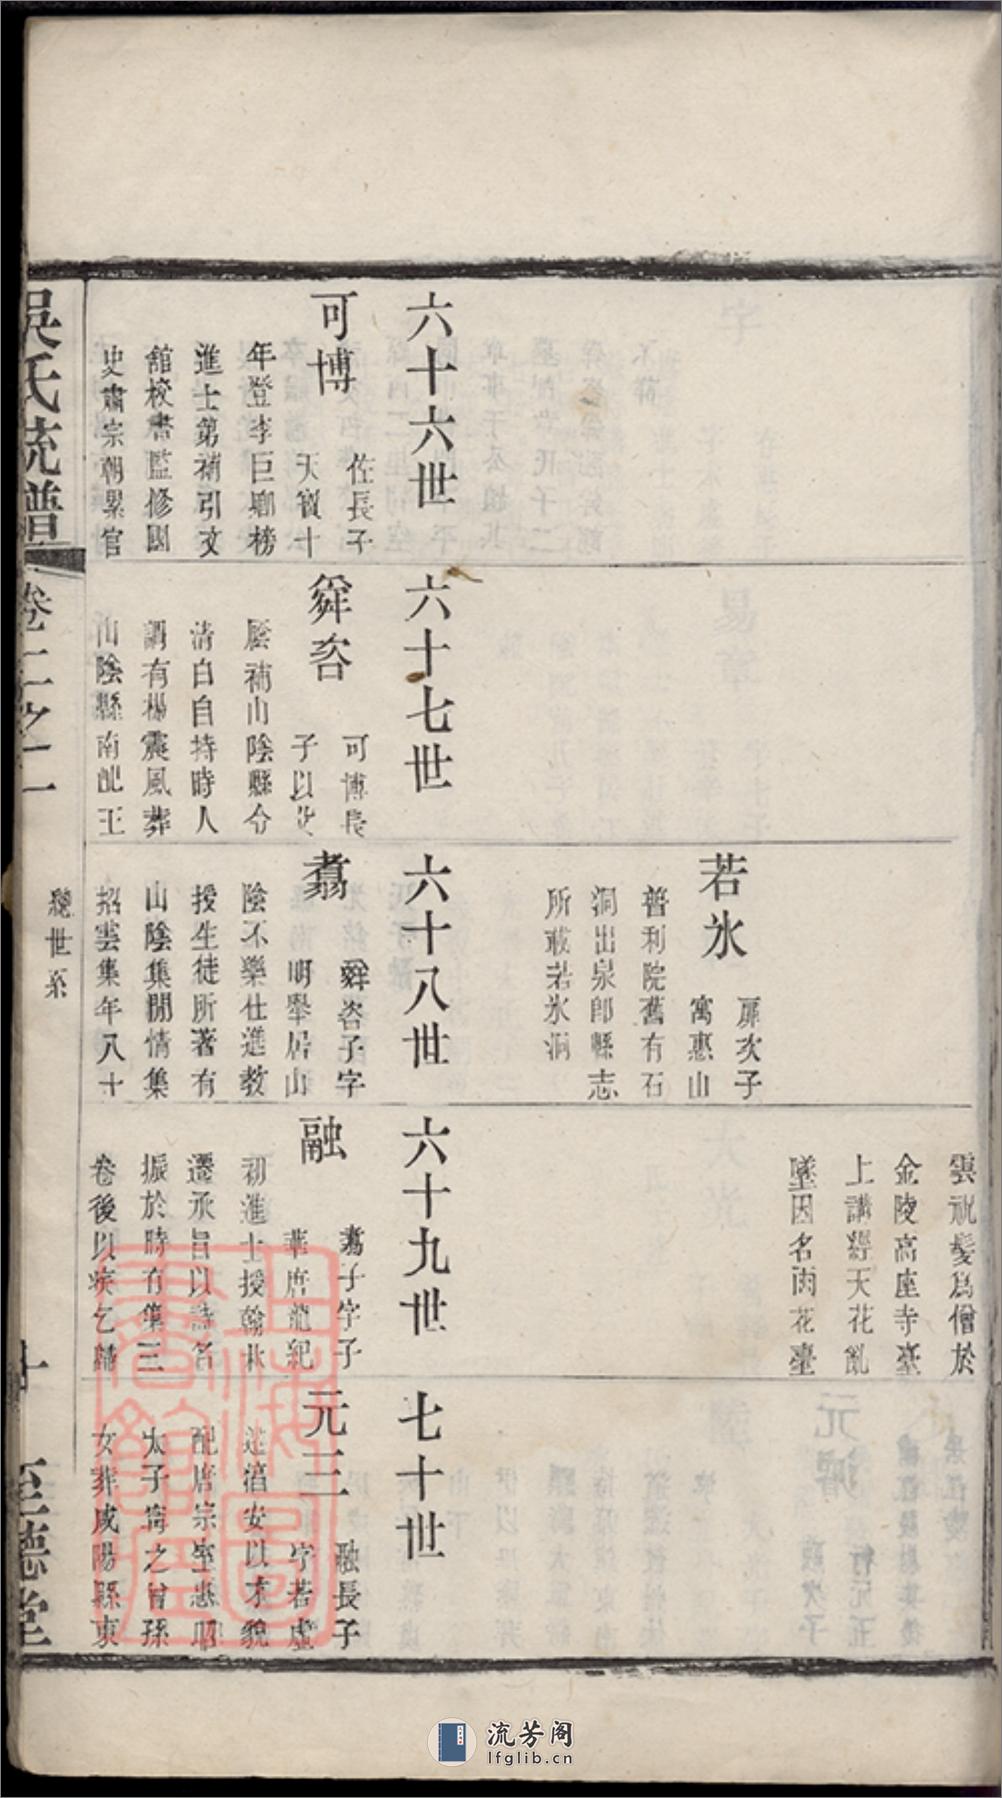 雲祝髮爲僧於
金陵高座寺臺
上講經天花亂
墜因名雨花臺
若氷
扉次子
寓惠山
普利院舊有石
洞出泉郎縣志
所載若氷洞
六十六世
可博
佐長子
天寶十
年登李巨卿榜
進士第補引文
舘校書監修國
史肅宗朝累官
六十七世
舜咨
可博長
子以
廕補山陰縣令
清白自持時人
謂有楊震風葬
山陰縣南配王
六十八世
翥
舜咨子字
明舉居山
陰不樂仕進教
授生徒所著有
山陰集閒情集
招雲集年八十
六十九世
融
翥子字子
華唐龍紀
初進士授翰林
遷承旨以詩名
振於時有集三
卷後以疾乞歸
七十世
元三
融長子
字若虛
遊滔安以才貌
配唐宗室惠昭
太子寗之曾孫
女葬咸陽縣東
吳氏統譜
卷二之二
總世系
十
至德堂
流芳阁
lfglib.cn